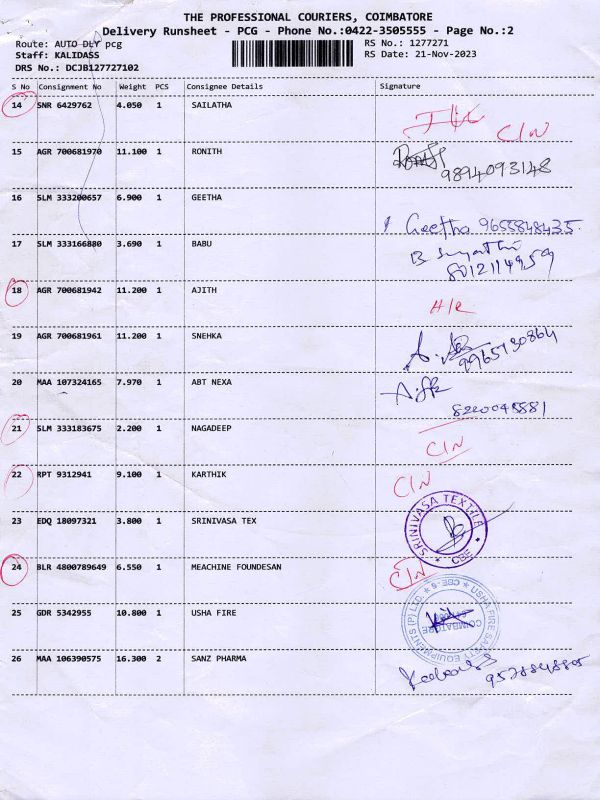 THE PROFESSIONAL COURIERS, COIMBATORE
Delivery Runsheet - PCG - Phone No.:0422-3505555 - Page No.:2
Route: AUTO DLY pcg
RS No.: 1277271
Staff: KALIDASS
RS Date: 21-Nov-2023
DRS No.: DCJB127727102
S No Consignment No Weight PCS Consignee Details Signature
14 SNR 6429762 4.050 1 SAILATHA
C/N
15 AGR 700681970 11.100 1 RONITH
9894093148
16 SLM 333200657 6.900 1 GEETHA
Geetha 9655848435
17 SLM 333166880 3.690 1 BABU
8012114959
18 AGR 700681942 11.200 1 AJITH
19 AGR 700681961 11.200 1 SNEHKA
20 MAA 107324165 7.970 1 ABT NEXA
21 SLM 333183675 2.200 1 NAGADEEP
C/N
22 RPT 9312941 9.100 1 KARTHIK
C/N
23 EDQ 18097321 3.800 1 SRINIVASA TEX
SRINIVASA TEXTILE
CBE
24 BLR 4800789649 6.550 1 MEACHINE FOUNDESAN
C/N
25 GDR 5342955 10.800 1 USHA FIRE
USHA FIRE SAFETY EQUIPMENTS (P) LTD. CBE-6
COIMBATORE
26 MAA 106390575 16.300 2 SANZ PHARMA